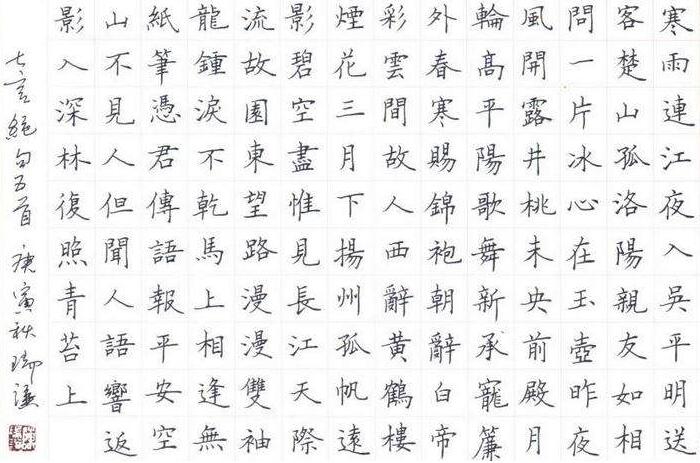 寒雨連江夜入吳平明送
客楚山孤洛陽親友如相
問一片冰心在玉壺昨夜
風開露井桃未央前殿月
輪高平陽歌舞新承寵簾
外春寒賜錦袍朝辭白帝
彩雲間故人西辭黃鶴樓
煙花三月下揚州孤帆遠
影碧空盡惟見長江天際
流故園東望路漫漫雙袖
龍鍾淚不乾馬上相逢無
紙筆憑君傳語報平安空
山不見人但聞人語響返
影入深林復照青苔上
七言絕句五首 庚寅秋瑞